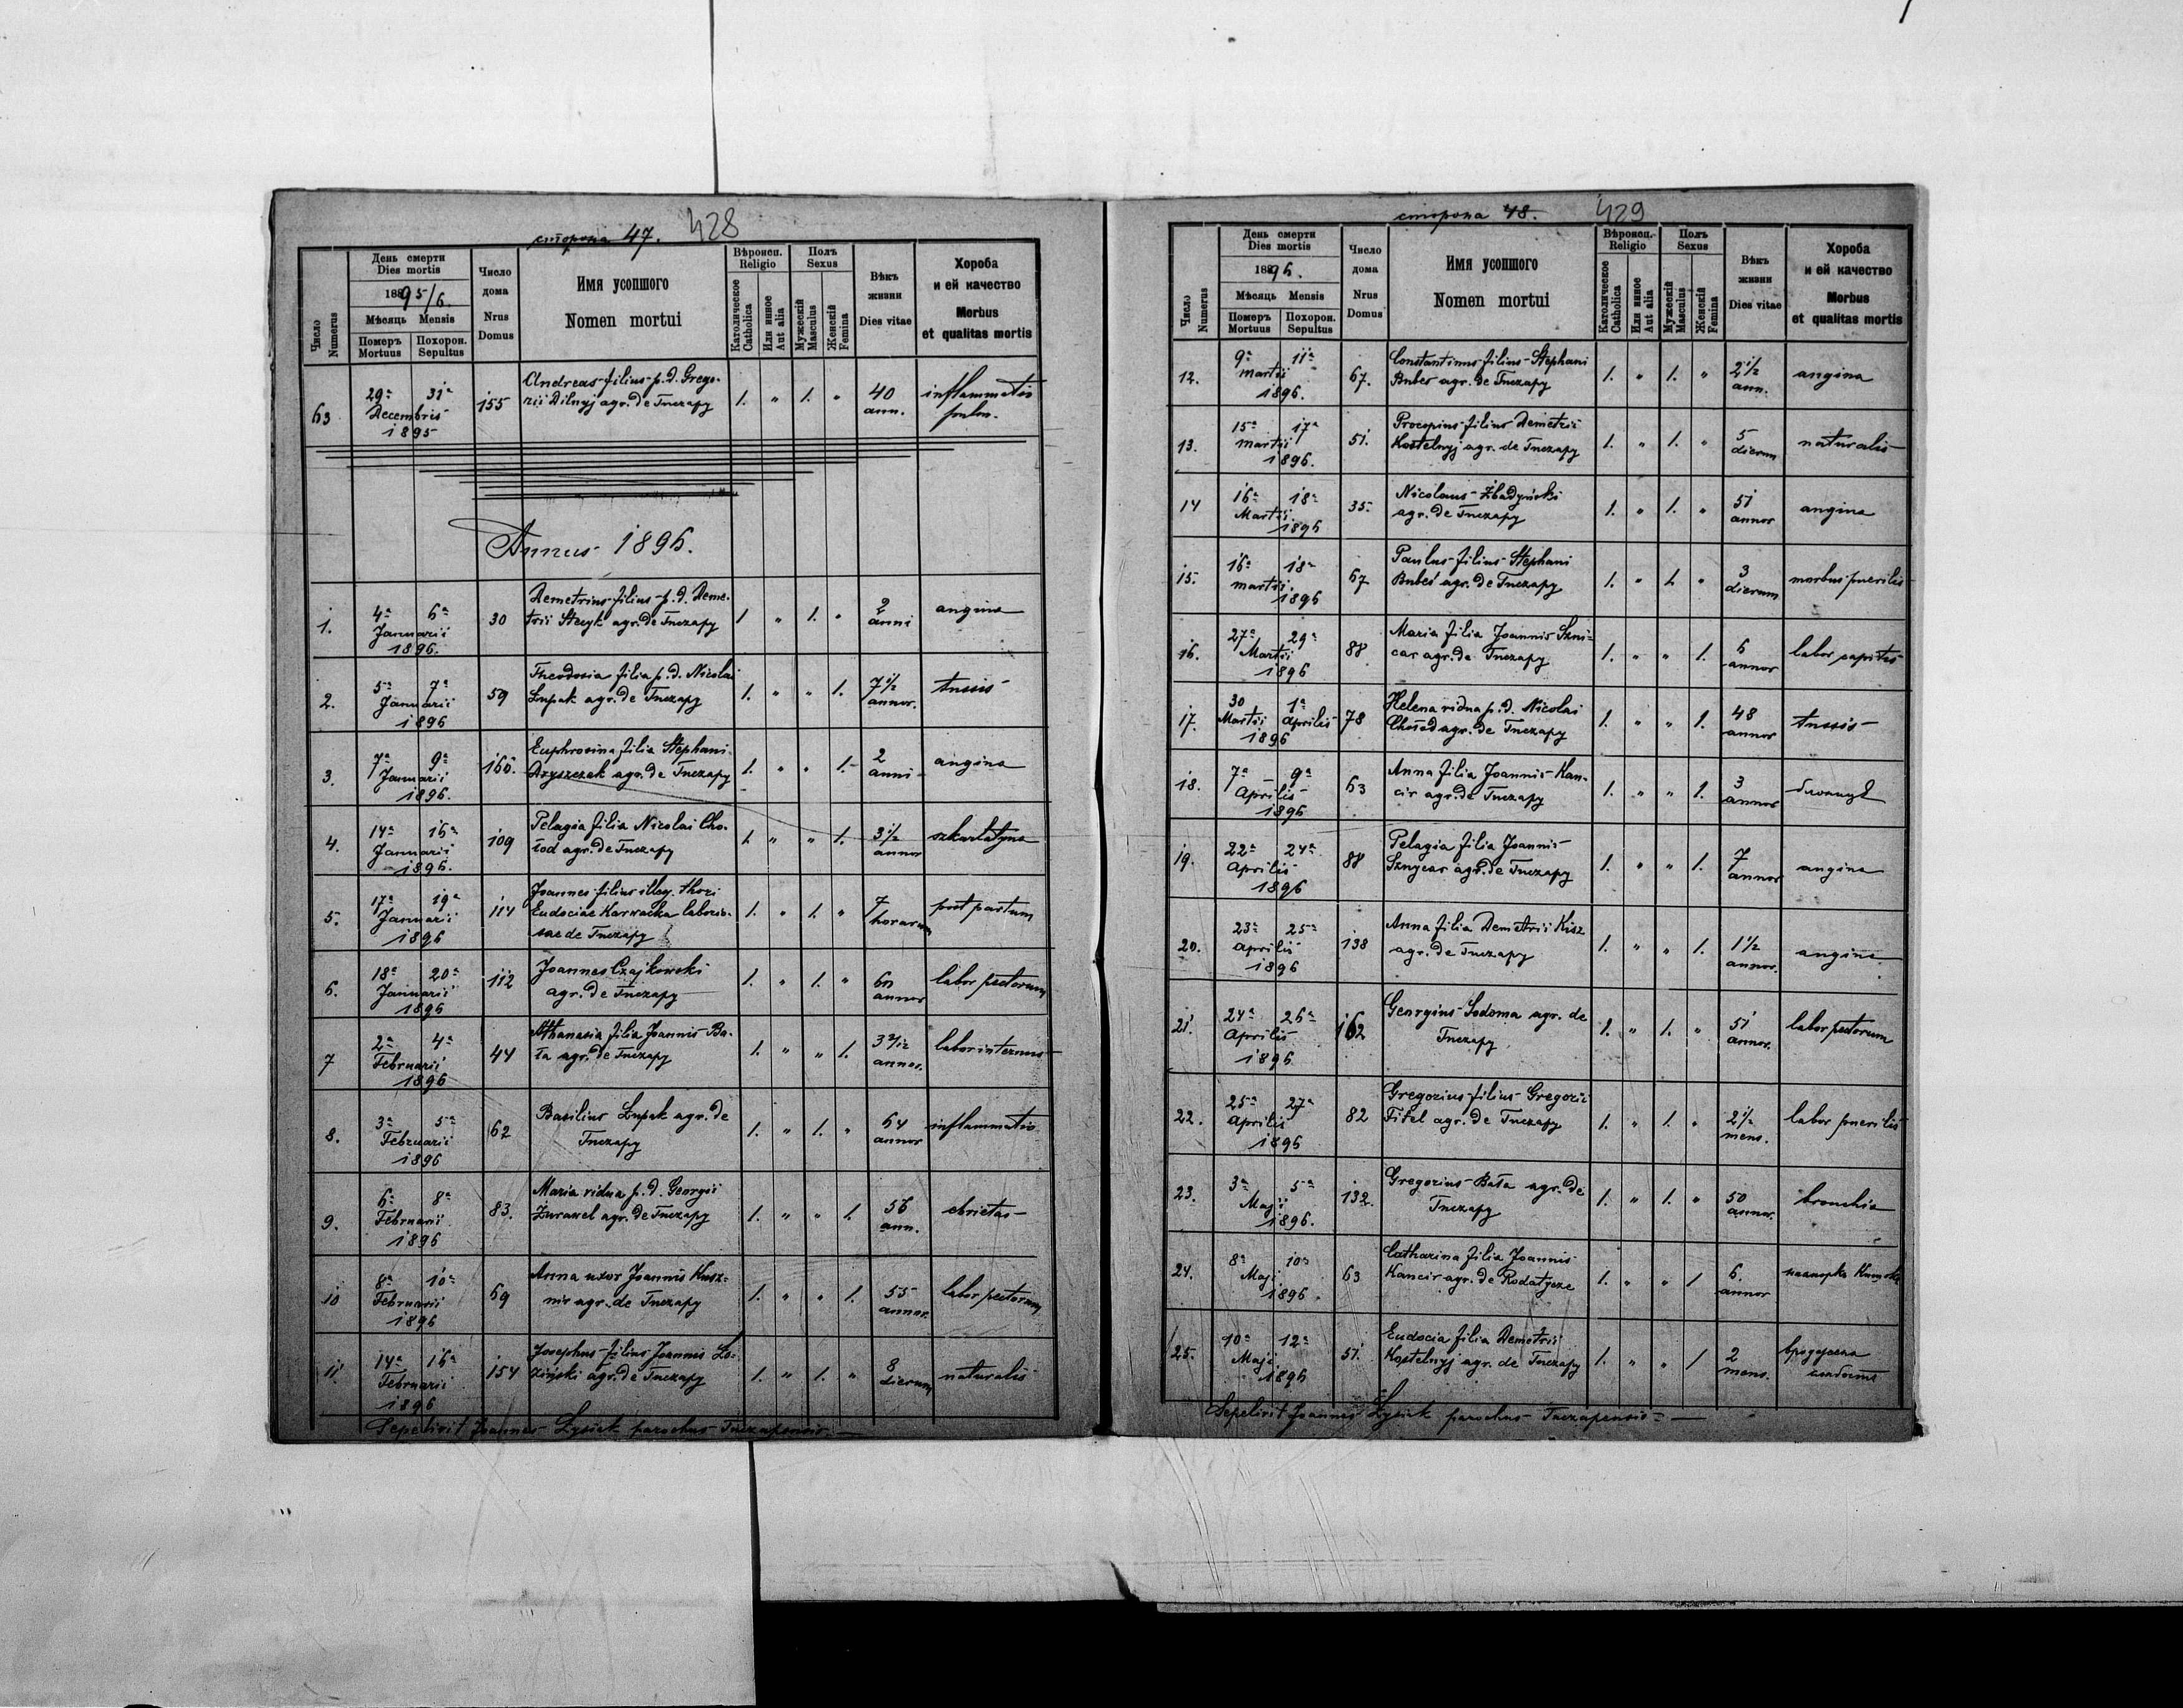 сторона 47. 428
Число Numerus
День смерти
Dies mortis
1895/6.
Мѣсяць Mensis
Померъ Mortuus
Похорон. Sepultus
Число дома
Nrus Domus
Имя усопшого
Nomen mortui
Вѣроиспов.
Religio
Католическое Catholica
Или инное Aut alia
Полъ
Sexus
Мужескій Masculus
Женскій Femina
Вѣкъ жизни
Dies vitae
Хороба
и ей качество
Morbus
et qualitas mortis
63 29a 31a Decembris 1895 155 Andreas filius p. d. Grego-
rii Dilnyj agr. de Tuczapy 1. " 1. " 40 ann. inflammatio pulm.
Annus 1896.
1. 4a 6a Januarii 1896. 30 Demetrius filius p. d. Deme-
trii Steyk agr. de Tuczapy 1 " 1. " 2 anni angina
2. 5a 7a Januarii 1896 59 Theodosia filia p. d. Nicolai
Łupak agr. de Tuczapy 1. " " 1. 7 1/2 annor. tussis
3. 7a 9a Januarii 1896. 160. Euphrosina filia Stephani
Dzyszczak agr. de Tuczapy 1. " " 1. 2 anni angina
4. 14a 16a Januarii 1896. 109 Pelagia filia Nicolai Cho-
łod agr. de Tuczapy 1. " " 1. 3 1/2 annor szkarlatyna
5. 17a 19a Januarii 1896 114 Joannes filius illeg. thori
Eudociae Karwacka laborio-
sae de Tuczapy 1. " 1. " 7 horarum post partum
6. 18a 20a Januarii 1896 112 Joannes Czajkowski
agr. de Tuczapy 1. " 1. " 60 annor labor pectorum
7 2a 4a Februarii 1896 44 Athanasia filia Joannis Ba-
ła agr. de Tuczapy 1. " " 1. 3 2/12 annor. labor internus
8. 3a 5a Februarii 1896 62 Basilius Łupak agr. de
Tuczapy 1. " 1. " 64 annor inflammatio
9. 6a 8a Februarii 1896 83. Maria vidua p. d. Georgii
Żurawel agr. de Tuczapy 1. " " 1. 56 ann. ebrietas
10 8a 10a Februarii 1896 69 Anna uxor Joannis Kusz-
nir agr. de Tuczapy 1. " " 1. 55 annor. labor pectorum
11. 14a 16a Februarii 1896 154 Josephus filius Joannis Ło-
ziński agr. de Tuczapy 1. " 1. " 8 dierum naturalis
Sepelivit Joannes Łysiak parochus Tuczapensis
сторона 48. 429
Число Numerus
День смерти
Dies mortis
1896.
Мѣсяць Mensis
Померъ Mortuus
Похорон. Sepultus
Число дома
Nrus Domus
Имя усопшого
Nomen mortui
Вѣроиспов.
Religio
Католическое Catholica
Или инное Aut alia
Полъ
Sexus
Мужескій Masculus
Женскій Femina
Вѣкъ жизни
Dies vitae
Хороба
и ей качество
Morbus
et qualitas mortis
12. 9a 11a Martii 1896. 67. Constantinus filius Stephani
Bubes agr. de Tuczapy 1. " 1. " 2 1/2 ann. angina
13. 15a 17a Martii 1896. 51. Procopius filius Demetrii
Kostelnyj agr. de Tuczapy 1. " 1. " 5 dierum naturalis
14 16a 18a Martii 1896 35. Nicolaus Żbadyński
agr. de Tuczapy 1. " 1. " 51 annor angina
15. 16a 18a Martii 1896 67 Paulus filius Stephani
Bubes agr. de Tuczapy 1. " 1. " 3 dierum morbus puerilis
16. 27a 29a Martii 1896 88 Maria filia Joannis Szni-
car agr. de Tuczapy 1. " " 1. 6 annor labor capitis
17. 30 Martii 1a Aprilis 1896 78 Helena vidua p. d. Nicolai
Chołod agr. de Tuczapy 1. " " 1. 48 annor tussis
18. 7a 9a Aprilis 1896 63 Anna filia Joannis Kan-
cir agr. de Tuczapy 1. " " 1. 3 annor
19. 22a 24a Aprilis 1896 88 Pelagia filia Joannis
Sznycar agr. de Tuczapy 1. " " 1. 7 annor angina
20. 23a 25a Aprilis 1896 138 Anna filia Demetrii Kisz
agr. de Tuczapy 1. " " 1. 1 1/2 annor. angina
21. 24a 26a Aprilis 1896 162 Georgius Sodoma agr. de
Tuczapy 1. " 1. " 51 annor. labor pectorum
22. 25a 27a Aprilis 1896 82 Gregorius filius Gregorii
Fitel agr. de Tuczapy 1. " 1. " 2 1/2 mens. labor puerilis
23. 3a 5a Maji 1896. 132. Gregorius Bała agr. de
Tuczapy 1. " 1. " 50 annor. bronchia
24. 8a 10a Maji 1896. 63 Catharina filia Joannis
Kancir agr. de Rodatycze 1. " " 1 6. annor
25. 10a 12a Maji 1896 51. Eudocia filia Demetrii
Kostelnyj agr. de Tuczapy 1. " " 1 2 mens. врожденна
Sepelivit Joannes Łysiak parochus Tuczapensis